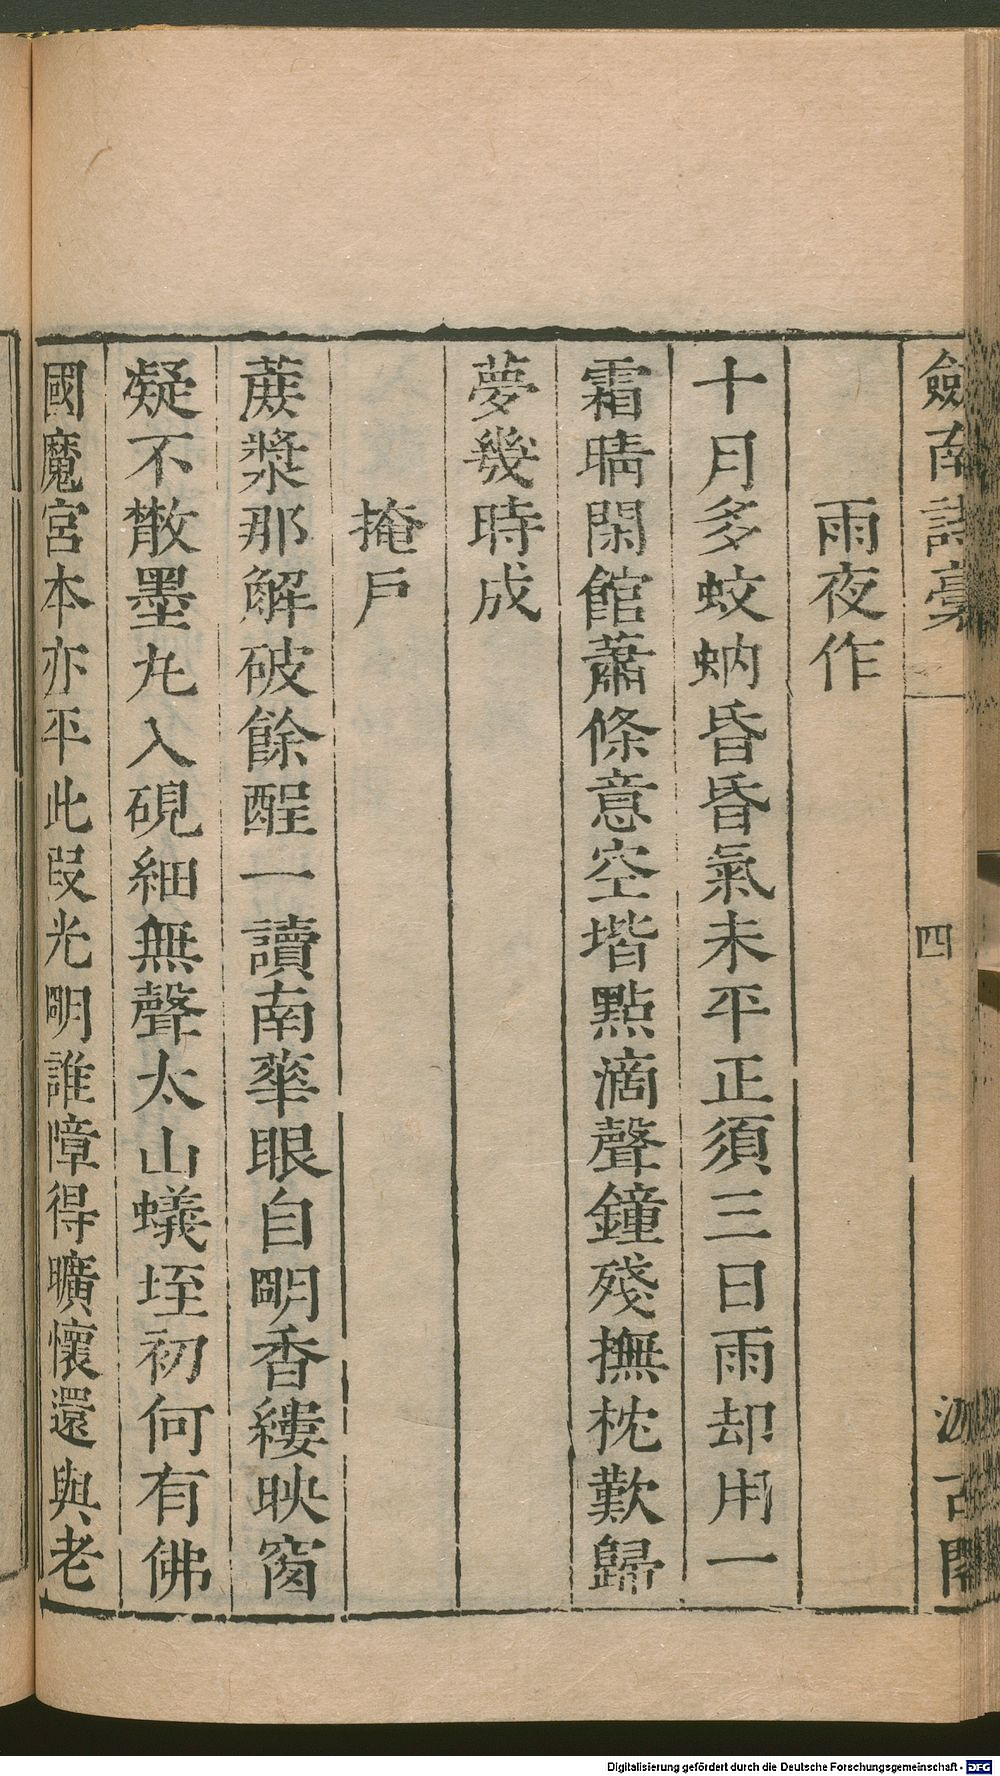 劍南詩稾 四 汲古閣
雨夜作
十月多蚊蚋昏昏氣未平正須三日雨却用一
霜晴閑館蕭條意空堦點滴聲鐘殘撫枕歎歸
夢幾時成
掩戶
蔗漿那解破餘酲一讀南華眼自明香縷映窗
凝不散墨丸入硯細無聲太山蟻垤初何有佛
國魔宮本亦平此段光明誰障得曠懷還與老
Digitalisierung gefördert durch die Deutsche Forschungsgemeinschaft - DFG